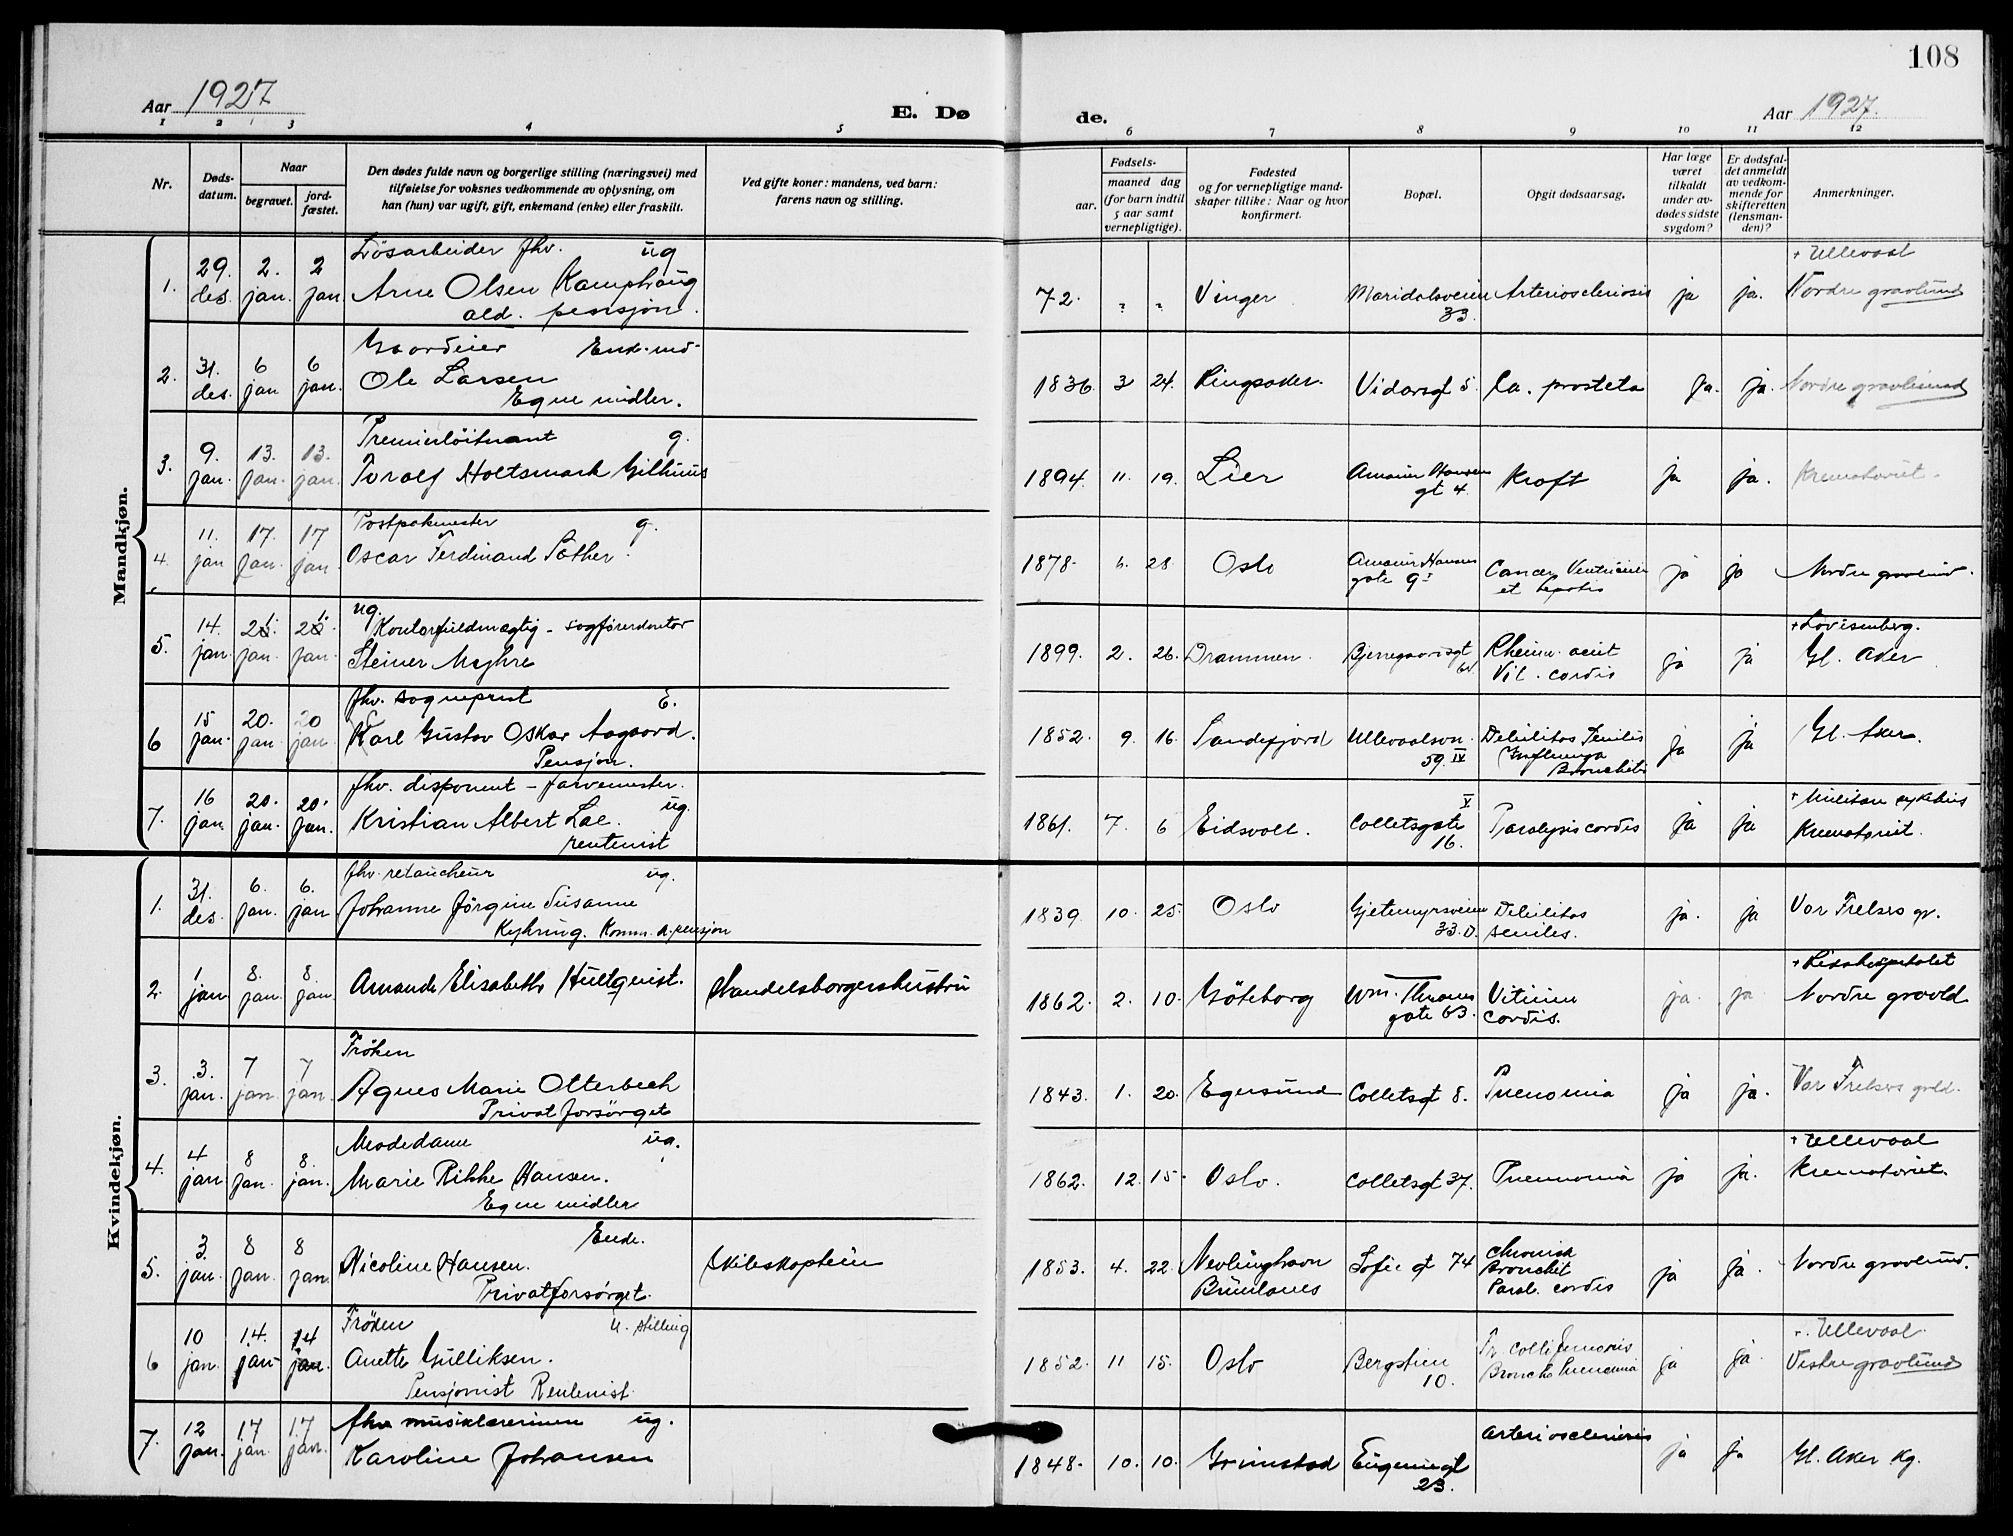 108
Aar 1927
E. Dø
de.
Aar 1927.
1 2 3 4 5 6 7 8 9 10 11 12
Nr.
Døds-
datum.
Naar
begravet.
jord-
fæstet.
Den dødes fulde navn og borgerlige stilling (næringsvei) med
tilføielse for voksnes vedkommende av oplysning, om
han (hun) var ugift, gift, enkemand (enke) eller fraskilt.
Ved gifte koner: mandens, ved barn:
farens navn og stilling.
Fødsels-
aar.
maaned dag
(for barn indtil
5 aar samt
vernepligtige).
Fødested
og for vernepligtige mand-
skaper tillike: Naar og hvor
konfirmert.
Bopæl.
Opgit dødsaarsag.
Har læge
været
tilkaldt
under av-
dødes sidste
sygdom?
Er dødsfal-
det anmeldt
av vedkom-
mende for
skifteretten
(lensman-
den)?
Anmerkninger.
Mandkjøn.
Løsarbeider fhv. ug
1. 29. des. 2. jan. 2 jan Arne Olsen Kamphaug
ald. pensjon.
72. " " Vinger Maridalsveien 33. Arteriosclerosis ja ja. + Ullevaal
Nordre gravlund
Gaardeier Enk.md.
2. 31. des. 6 jan 6 jan. Ole Larsen
Egne midler.
1836. 3 24. Ringsaker. Vidarsgt 5. Ca. prosteta ja. ja. Nordre gravlund
Premierløitnant g.
3. 9. jan. 13. jan. 13. jan. Toralf Holtsmark Gilhuus
1894. 11. 19. Lier Amaur Hansen gt 4. Kraft ja ja. Krematoriet.
Postpakmester g.
4. 11. jan 17. jan. 17 jan Oscar Ferdinand Sæther.
1878. 6. 28 Oslo Amaur Hansens gate 9 I Cancer Ventriculi et hepatis ja ja Nordre gravlund.
ug. Kontorfuldmægtig - sagførerkontor
5. 14. jan. 21. jan. 21. jan. Steiner Myhre
1899. 2. 26. Drammen. Bjerregaardsgt Rheum. acut Vit. cordis ja ja + Lovisenberg.
Gl. Aker
fhv. sogneprest E.
6 15 jan. 20. jan. 20 jan. Karl Gustav Oskar Aagaard.
Pensjon.
1852. 9. 16. Sandefjord Ullevaalsvn. 59. IV Debilitas Senilis Influenza Bronchitis ja ja Gl. Aker.
fhv. disponent - farvemester.
7. 16 jan. 20. jan. 20. jan. Kristian Albert Lae. ug.
rentenist
1861. 7. 6 Eidsvoll. Colletsgate 16. V Paralysis cordis ja ja + Militære sykehus
Krematoriet.
Kvindekjøn.
fhv. retaucheur ug.
1. 31. des. 6. jan. 6. jan Johanne Jørgine Susanne
Kyhring. Komm. a. pensjon
1839. 10. 25. Oslo Gjetemyrsveien 33.D. Debilitas seniles. ja. ja Vor Frelsers gr.
2. 1 jan 8. jan. 8 jan Amanda Elisabeth Hultqvist. Handelsborgershustru
1862. 2. 10. Göteborg Wm. Thranes gate 63. Vitium Cordis. ja. ja + Rikshospitalet
Nordre gravld
Frøken
3. 3. jan. 7 jan. 7 jan. Agnes Marie Otterbech
Privat forsørget
1843. 1. 20. Egersund Colletsgt 8. Pneumonia ja ja. Vor Frelsers gvld.
Modedame ug.
4. 4 jan 8 jan. 8. jan. Marie Rikke Hansen.
Egne midler
1862. 12. 15. Oslo. Colletsgt 37. Pneumonia ja ja. + Ullevaal
Krematoriet.
Enke.
5. 3. jan. 8 jan. 8 jan. Nicoline Hansen. Skibskaptein
Privatforsørget.
1853. 4. 22. Nevlunghavn Brunlanes Sofie gt 74 Chronisk Bronchit Paral. cordis ja ja. Nordre gravlund.
Frøken u. stilling
6 10 jan. 14. jan. 14 jan. Anette Gulliksen.
Pensjonist Rentenist.
1852. 11 15. Oslo Bergstien 10. Fr. Colli femoris Broncho Pneumonia ja ja. + Ullevaal
Vestre gravlund
fhv. musiklærerinne ug.
7. 12 jan. 17 jan. 17 jan. Karoline Johansen
1848. 10. 10. Grimstad Eugeniegt 23. Arteriosclerosis ja ja Gl. Aker kg.